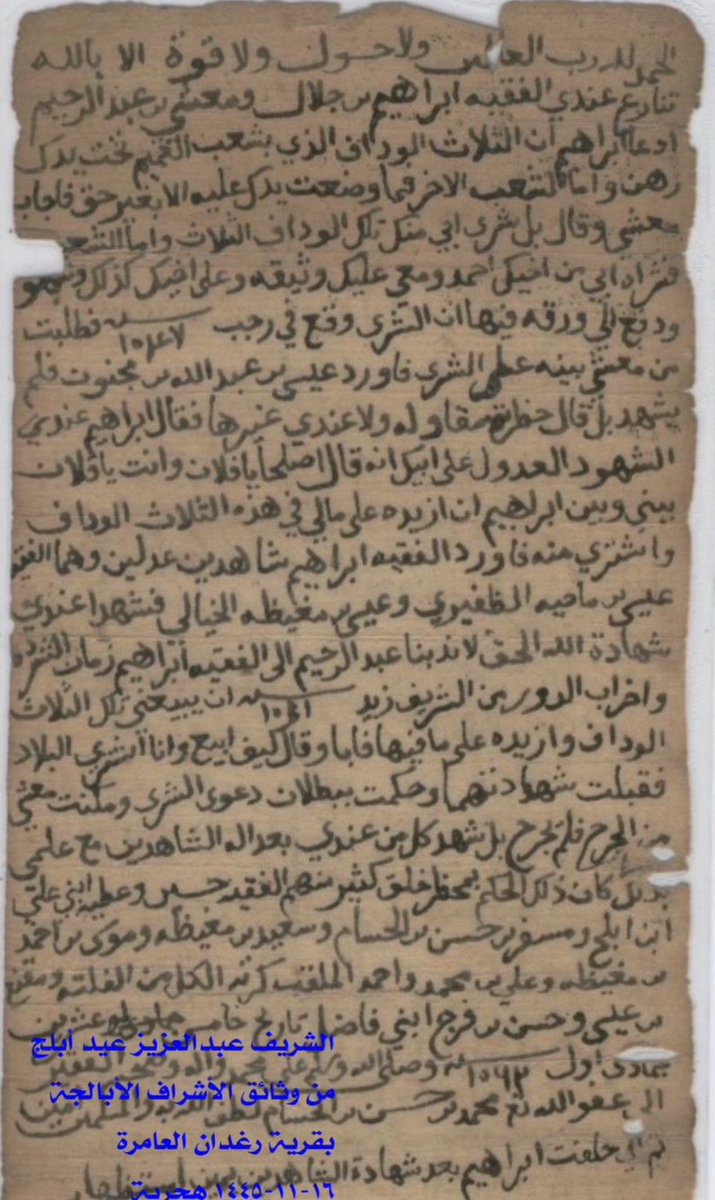 الحمد لله رب العالمين ولا حول ولا قوة الا بالله
تنازع عندي الفقيه ابراهيم بن جلال ومعشي بن عبد الرحيم
ادعا ابراهيم ان الثلاث الوداف الذي بشعب تحت يدك
رهن واما الشعب الاخر فما وضعت يدك عليه الا بغير حق فاجاب
معشي وقال بل شرى ابي منك تلك الوداف الثلاث واما الشعب
فشراه ابي من اخيك احمد ومعي عليك وثيقه وعلى اخيك كذلك
ودفع الي ورقه فيها ان الشرى وقع في رجب سنه ١٠٤٧ فطلبت
من معشي بينه على الشرى فاورد عيسى بن عبد الله بن مجنوت فلم
يشهد بل قال حظرت مقاوله ولا عندي غيرها فقال ابراهيم عندي
الشهود العدول على ابيك انه قال اصلحا يا فلان وانت يا فلان
بيني وبين ابراهيم ان ازيده على مالي في هذه الثلاث الوداف
واشتري منه فاورد الفقيه ابراهيم شاهدين عدلين وهما الفقيه
عيسى بن الظفيري وعيسى بن مغيظه الخيالي فشهدا عندي
شهادة الله الحق عبد الرحيم الى الفقيه ابراهيم زمان
واخراب الدور من الشريف زيد سنه ان يبيعني تلك الثلاث
الوداف وازيده على ما فيها فابا وقال كيف ابيع وانا اشري البلاد
فقبلت شهادتهما وحكمت ببطلان دعوى الشرى ومكنت معشي
من الجرح فلم يجرح بل شهد كل من عندي بعداله الشاهدين مع علمي
بذلك كان ذلك الحكم بمحظر خلق كثير منهم الفقيه حسين وعطيه ابني علي
ابن ابلج ومسفر بن حسن بن الحسام وسعيد بن مغيظه وموسى بن احمد
بن مغيظه وعلي بن محمد واحمد الملقب الكل من الفلته
بن عيسى وحسن بن فرج ابني فاضل تاريخ خامس
جمادى اول سنه ١٠٦٣ وصلى الله
الى عفو الله محمد بن حسن بن الحسام لطف الله به
ثم اني حلفت ابراهيم بعد شهادة الشاهدين يمين استظهار
الشريف عبدالعزيز عيد أبلج
من وثائق الاشراف الأبالجة
بقرية رغدان العامرة
١٦-١١-١٤٤٥ هجرية